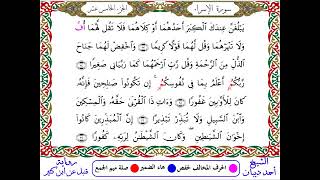 الجزء الخامس عشر
سورة الإسراء
يَبْلُغَنَّ عِندَكَ ٱلْكِبَرَ أَحَدُهُمَا أَوْ كِلَاهُمَا فَلَا تَقُل لَّهُمَا أُفَّ
وَلَا تَنْهَرْهُمَا وَقُل لَّهُمَا قَوْلًا كَرِيمًا ۝ وَٱخْفِضْ لَهُمَا جَنَاحَ
ٱلذُّلِّ مِنَ ٱلرَّحْمَةِ وَقُل رَّبِّ ٱرْحَمْهُمَا كَمَا رَبَّيَانِي صَغِيرًا ۝
رَّبُّكُمُۥ أَعْلَمُ بِمَا فِي نُفُوسِكُمُۥ إِن تَكُونُوا۟ صَـٰلِحِينَ فَإِنَّهُۥ
كَانَ لِلْأَوَّٰبِينَ غَفُورًا ۝ وَءَاتِ ذَا ٱلْقُرْبَىٰ حَقَّهُۥ وَٱلْمِسْكِينَ
وَٱبْنَ ٱلسَّبِيلِ وَلَا تُبَذِّرْ تَبْذِيرًا ۝ إِنَّ ٱلْمُبَذِّرِينَ كَانُوٓا۟
إِخْوَٰنَ ٱلشَّيَـٰطِينِ وَكَانَ ٱلشَّيْطَـٰنُ لِرَبِّهِۦ كَفُورًا ۝
الشيخ أحمد ديبان
الحرف المخالف لحفص
هاء الضمير
صلة ميم الجمع
رواية قنبل عن ابن كثير